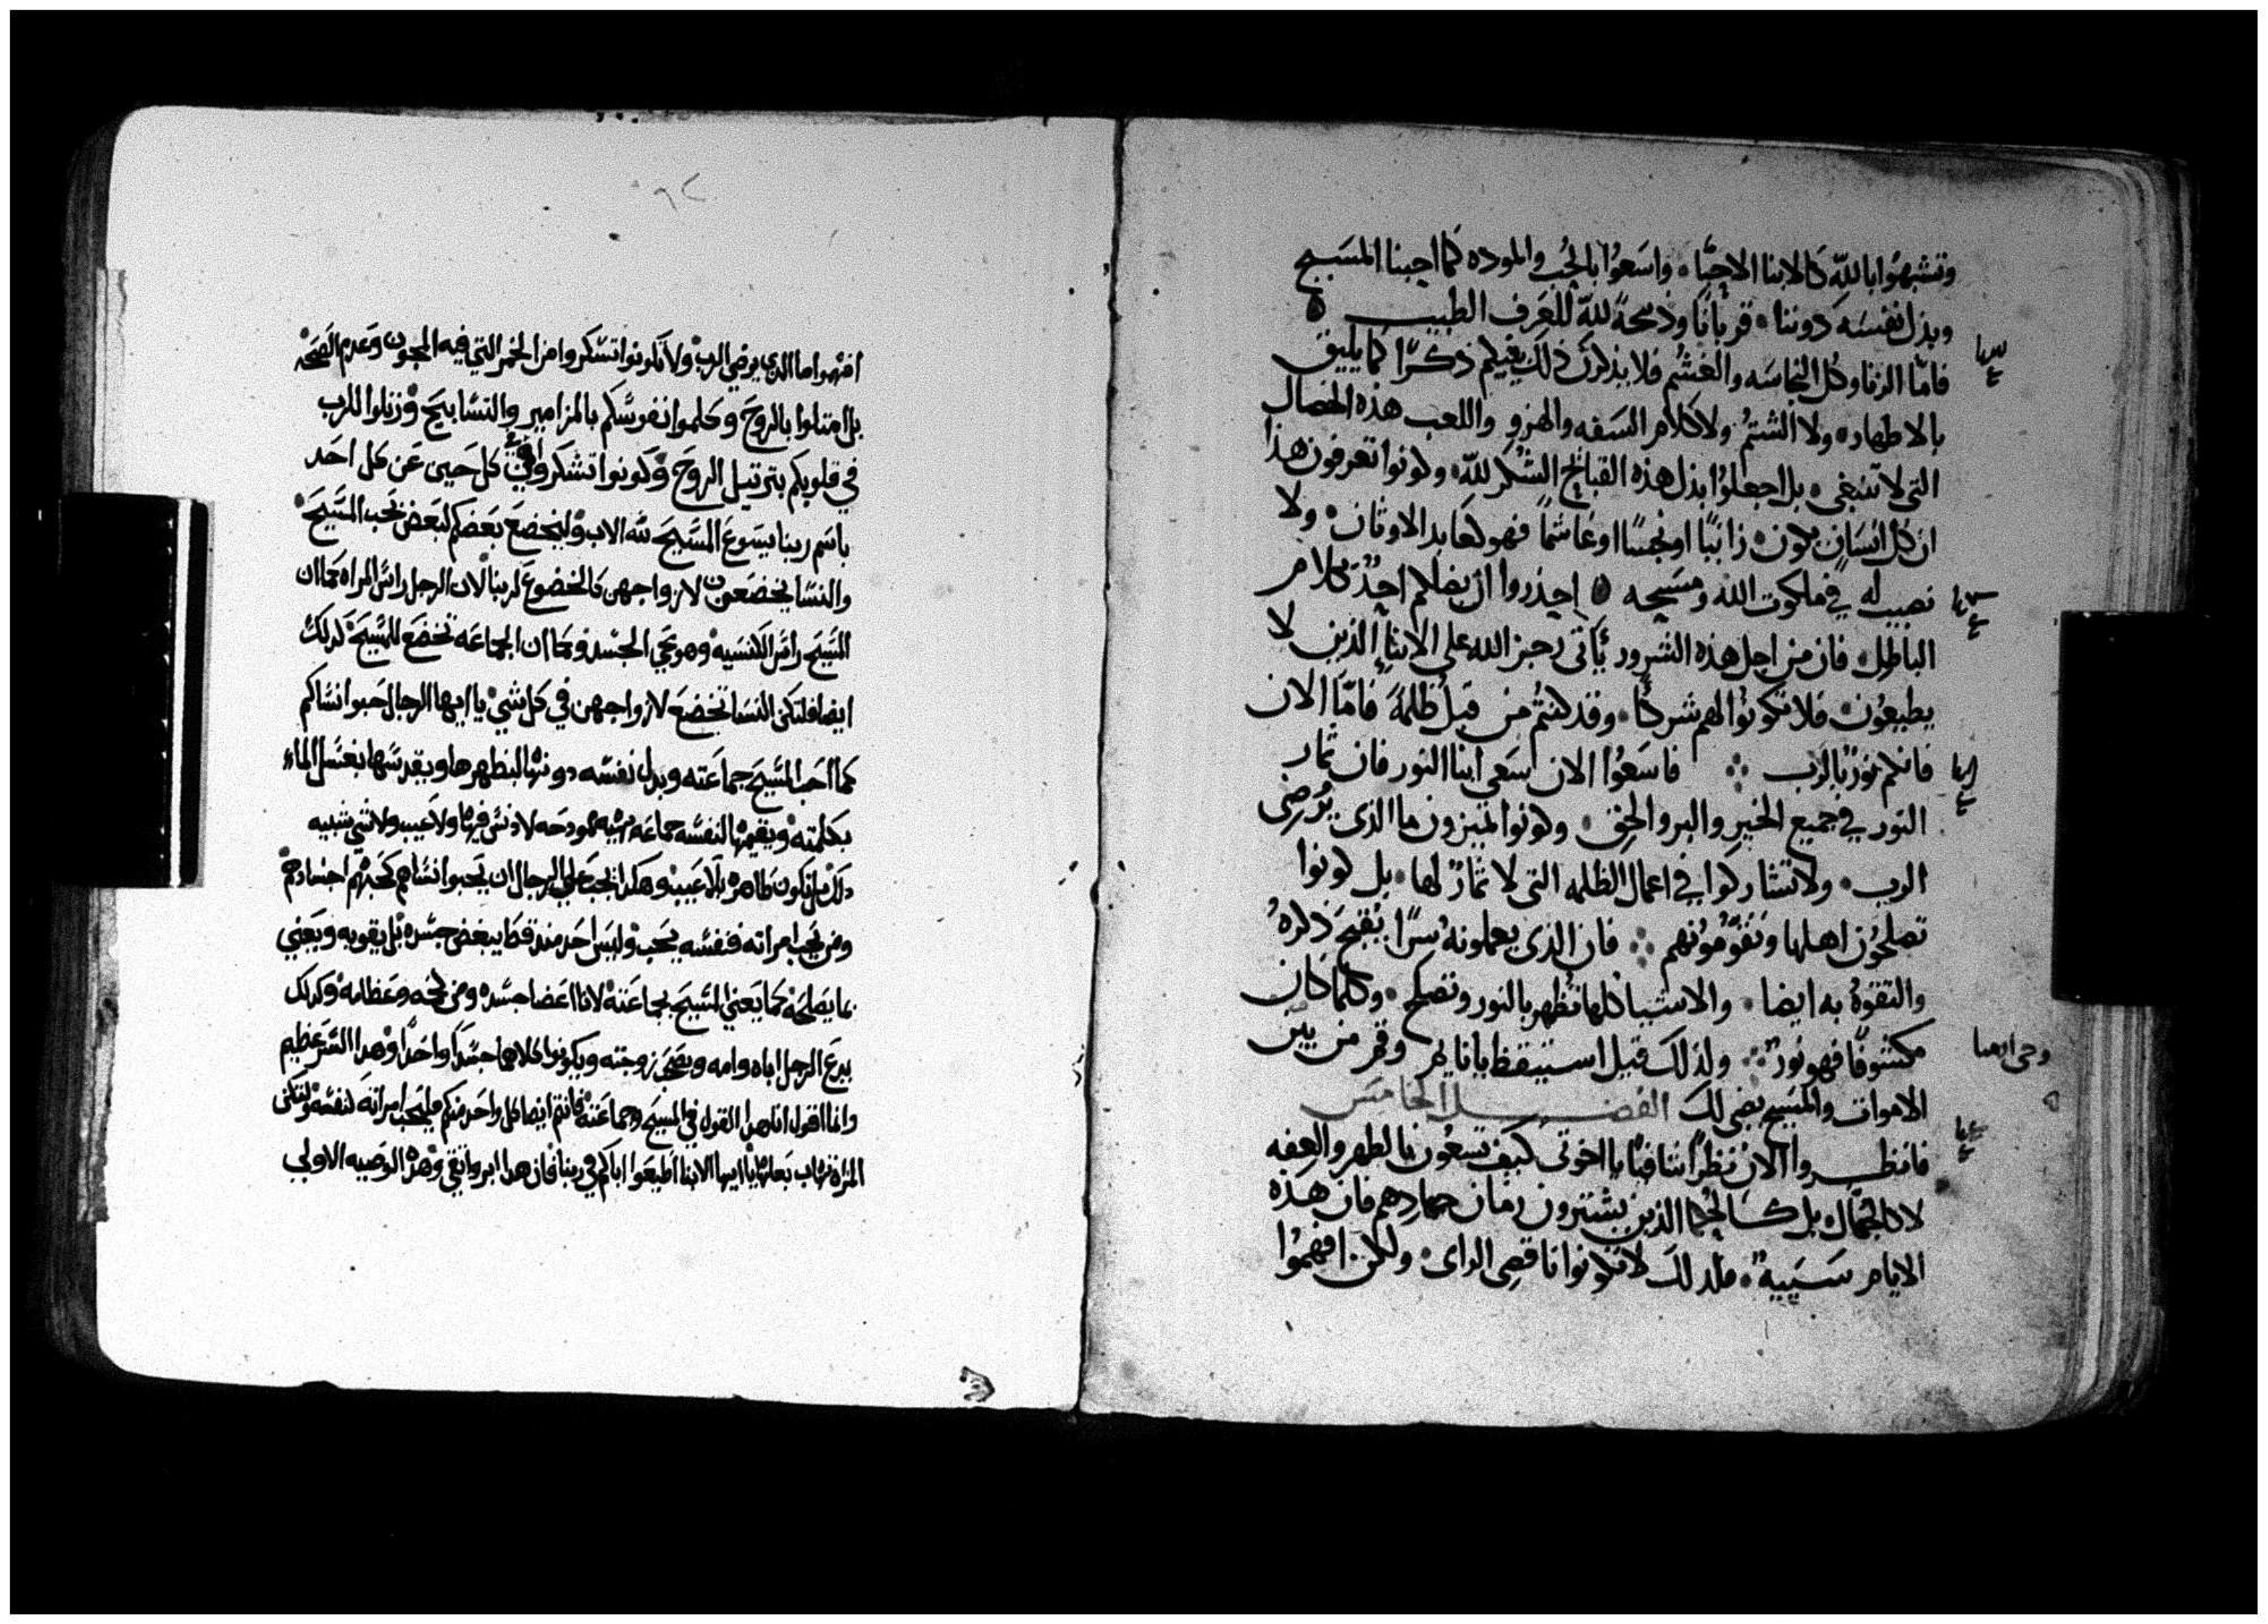 وتشبهوا بالله كالابنا الاحبا، واسعوا بالحب والموده كما احبنا المسيح
وبذل نفسه دوننا، قربانا وذبيحة لله للعرف الطيب
فاما الزنا وكل النجاسه والغشم فلا يذكرن ذلك فيكم ذكرا كما يليق
بالاطهار، ولا الشتم ولا كلام السفه والهزو واللعب هذه الخصال
التي لا تنبغي، بل اجعلوا بدل هذه القبايح الشكر لله، وكونوا تعرفون هذا
ان كل انسان يكون زانيا او نجسا او غاشما فهو كعابد الاوثان، ولا
نصيب له في ملكوت الله ومسيحه احذروا ان يضلكم احد بكلام
الباطل، فان من اجل هذه الشرور يأتي رجز الله على الابنا الذين لا
يطيعون، فلا تكونوا لهم شركا، وقد كنتم من قبل ظلمة فاما الان
فانكم نور بالرب فاسعوا الان سعي ابنا النور فان ثمار
النور في جميع الخير والبر والحق، وكونوا تميزون ما الذي يرضي
الرب، ولا تشاركوا في اعمال الظلمه التي لا ثمار لها، بل كونوا
تصلحون اهلها وتقومونهم فان الذي يعملونه سرا يقبح ذكره
والتفوه به ايضا، والاشيا كلها تظهر بالنور وتصلح، وكلما كان
مكشوفا فهو نور ولذلك قيل استيقظ يا نايم وقم من بين
الاموات والمسيح يضي لك الفصل الخامس
فانظروا الان نظرا شافيا يا اخوتي كيف تسعون بالطهر والعفه
لا كالجهال، بل كالحكما الذين يشترون زمان جهادهم فان هذه
الايام سييه، فلذلك لا تكونوا ناقصي الراى، ولكن افهموا
افهموا ما الدي يرضي الرب ولا تكونوا تسكروا من الخمر التي فيه المجون وعدم الصحه
بل امتلوا بالروح وكلموا نفوسكم بالمزامير والتسابيح ورتلوا للرب
في قلوبكم بترتيل الروح وكونوا تشكروا في كل حين عن كل احد
باسم ربنا يسوع المسيح لله الاب وليخضع بعضكم لبعض بحب المسيح
والنسا يخضعون لازواجهن كالخضوع لربنا لان الرجل راس المراه كما ان
المسيح راس الكنسيه وهو محي الجسد وكما ان الجماعه تخضع للمسيح لدلك
ايضا فلتكن النسا تخضع لازواجهن في كل شي يا ايها الرجال حبوا نساكم
كما احب المسيح جماعته وبدل نفسه دونها ليطهرها ويقدسها بغسل الماء
بكلمته ويقيمها لنفسه جماعه بهيه ممودحه لا دنس فيها ولا عيب ولا شي شبيه
دلك بل تكون طاهره بلا عيب وهكدا يجب على الرجال ان يحبوا نساهم كحبهم اجسادهم
ومن يحب امراته فنفسه يحب وليس احد منا قط يبغض جسده بل يقويه ويعني
بما يصلحه كما يعني المسيح بجماعته لانا اعضا جسده ومن لحمه وعظامه وكدلك
يدع الرجل اباه وامه ويصحب زوجته ويكونوا كلاهما جسدا واحدا وهدا السر عظيم
وانما اقول انا هدا القول في المسيح وجماعته فانتم ايضا كل واحد منكم فليحب امراته كنفسه ولتكن
المراه تهاب بعلها يا ايها الابنا اطيعوا اباكم في ربنا فان هدا ابر واتقي وهده الوصيه الاولي